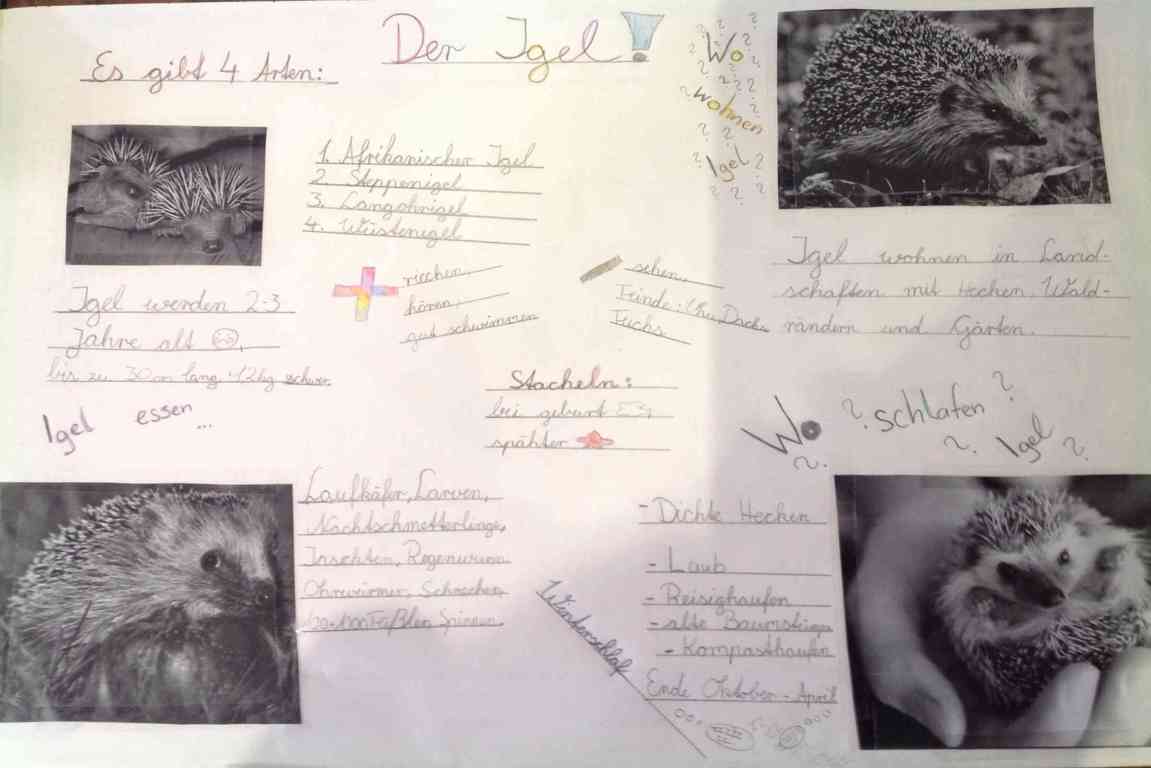 Der Igel!
Es gibt 4 Arten:
1. Afrikanischer Igel
2. Steppenigel
3. Langohrigel
4. Wüstenigel
Igel werden 2-3
Jahre alt
bis zu 30cm lang 1,2kg schwer
riechen,
hören,
gut schwimmen
sehen.
Feinde: Uhu, Dachs,
Fuchs.
Wo
wohnen
Igel
Igel wohnen in Land-
schaften mit Hecken, Wald-
rändern und Gärten.
Stacheln:
bei geburt
spähter
Igel essen ...
Laufkäfer, Larven,
Nachtschmetterlinge,
Insekten, Regenwurm
Ohrwürmer, Schnecken,
Spinnen.
Wo ? schlafen ?
? ? Igel ?
- Dichte Hecken
- Laub
- Reisighaufen
- alte Baumsteine
- Kompasthaufen
Winterschlaf
Ende Oktober - April